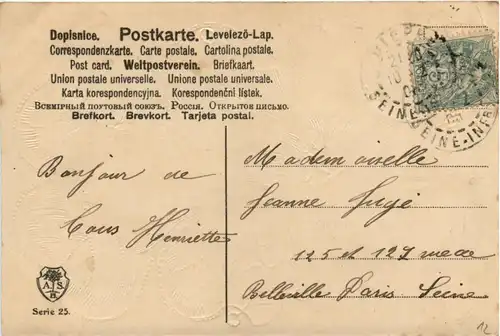 Dopisnice. Postkarte. Levelező-Lap.
Correspondenzkarte. Carte postale. Cartolina postale.
Post card. Weltpostverein. Briefkaart.
Union postale universelle. Unione postale universale.
Karta korespondencyjna. Korespondenční lístek.
Всемірный почтовый союзъ. Россія. Открытое письмо.
Brefkort. Brevkort. Tarjeta postal.
Bonjour de
Tous Henriette
Mademoiselle
Jeanne
125 et 127 rue de
Belleville Paris Seine
A S
B
Serie 25.
SEINE-INFRE
12